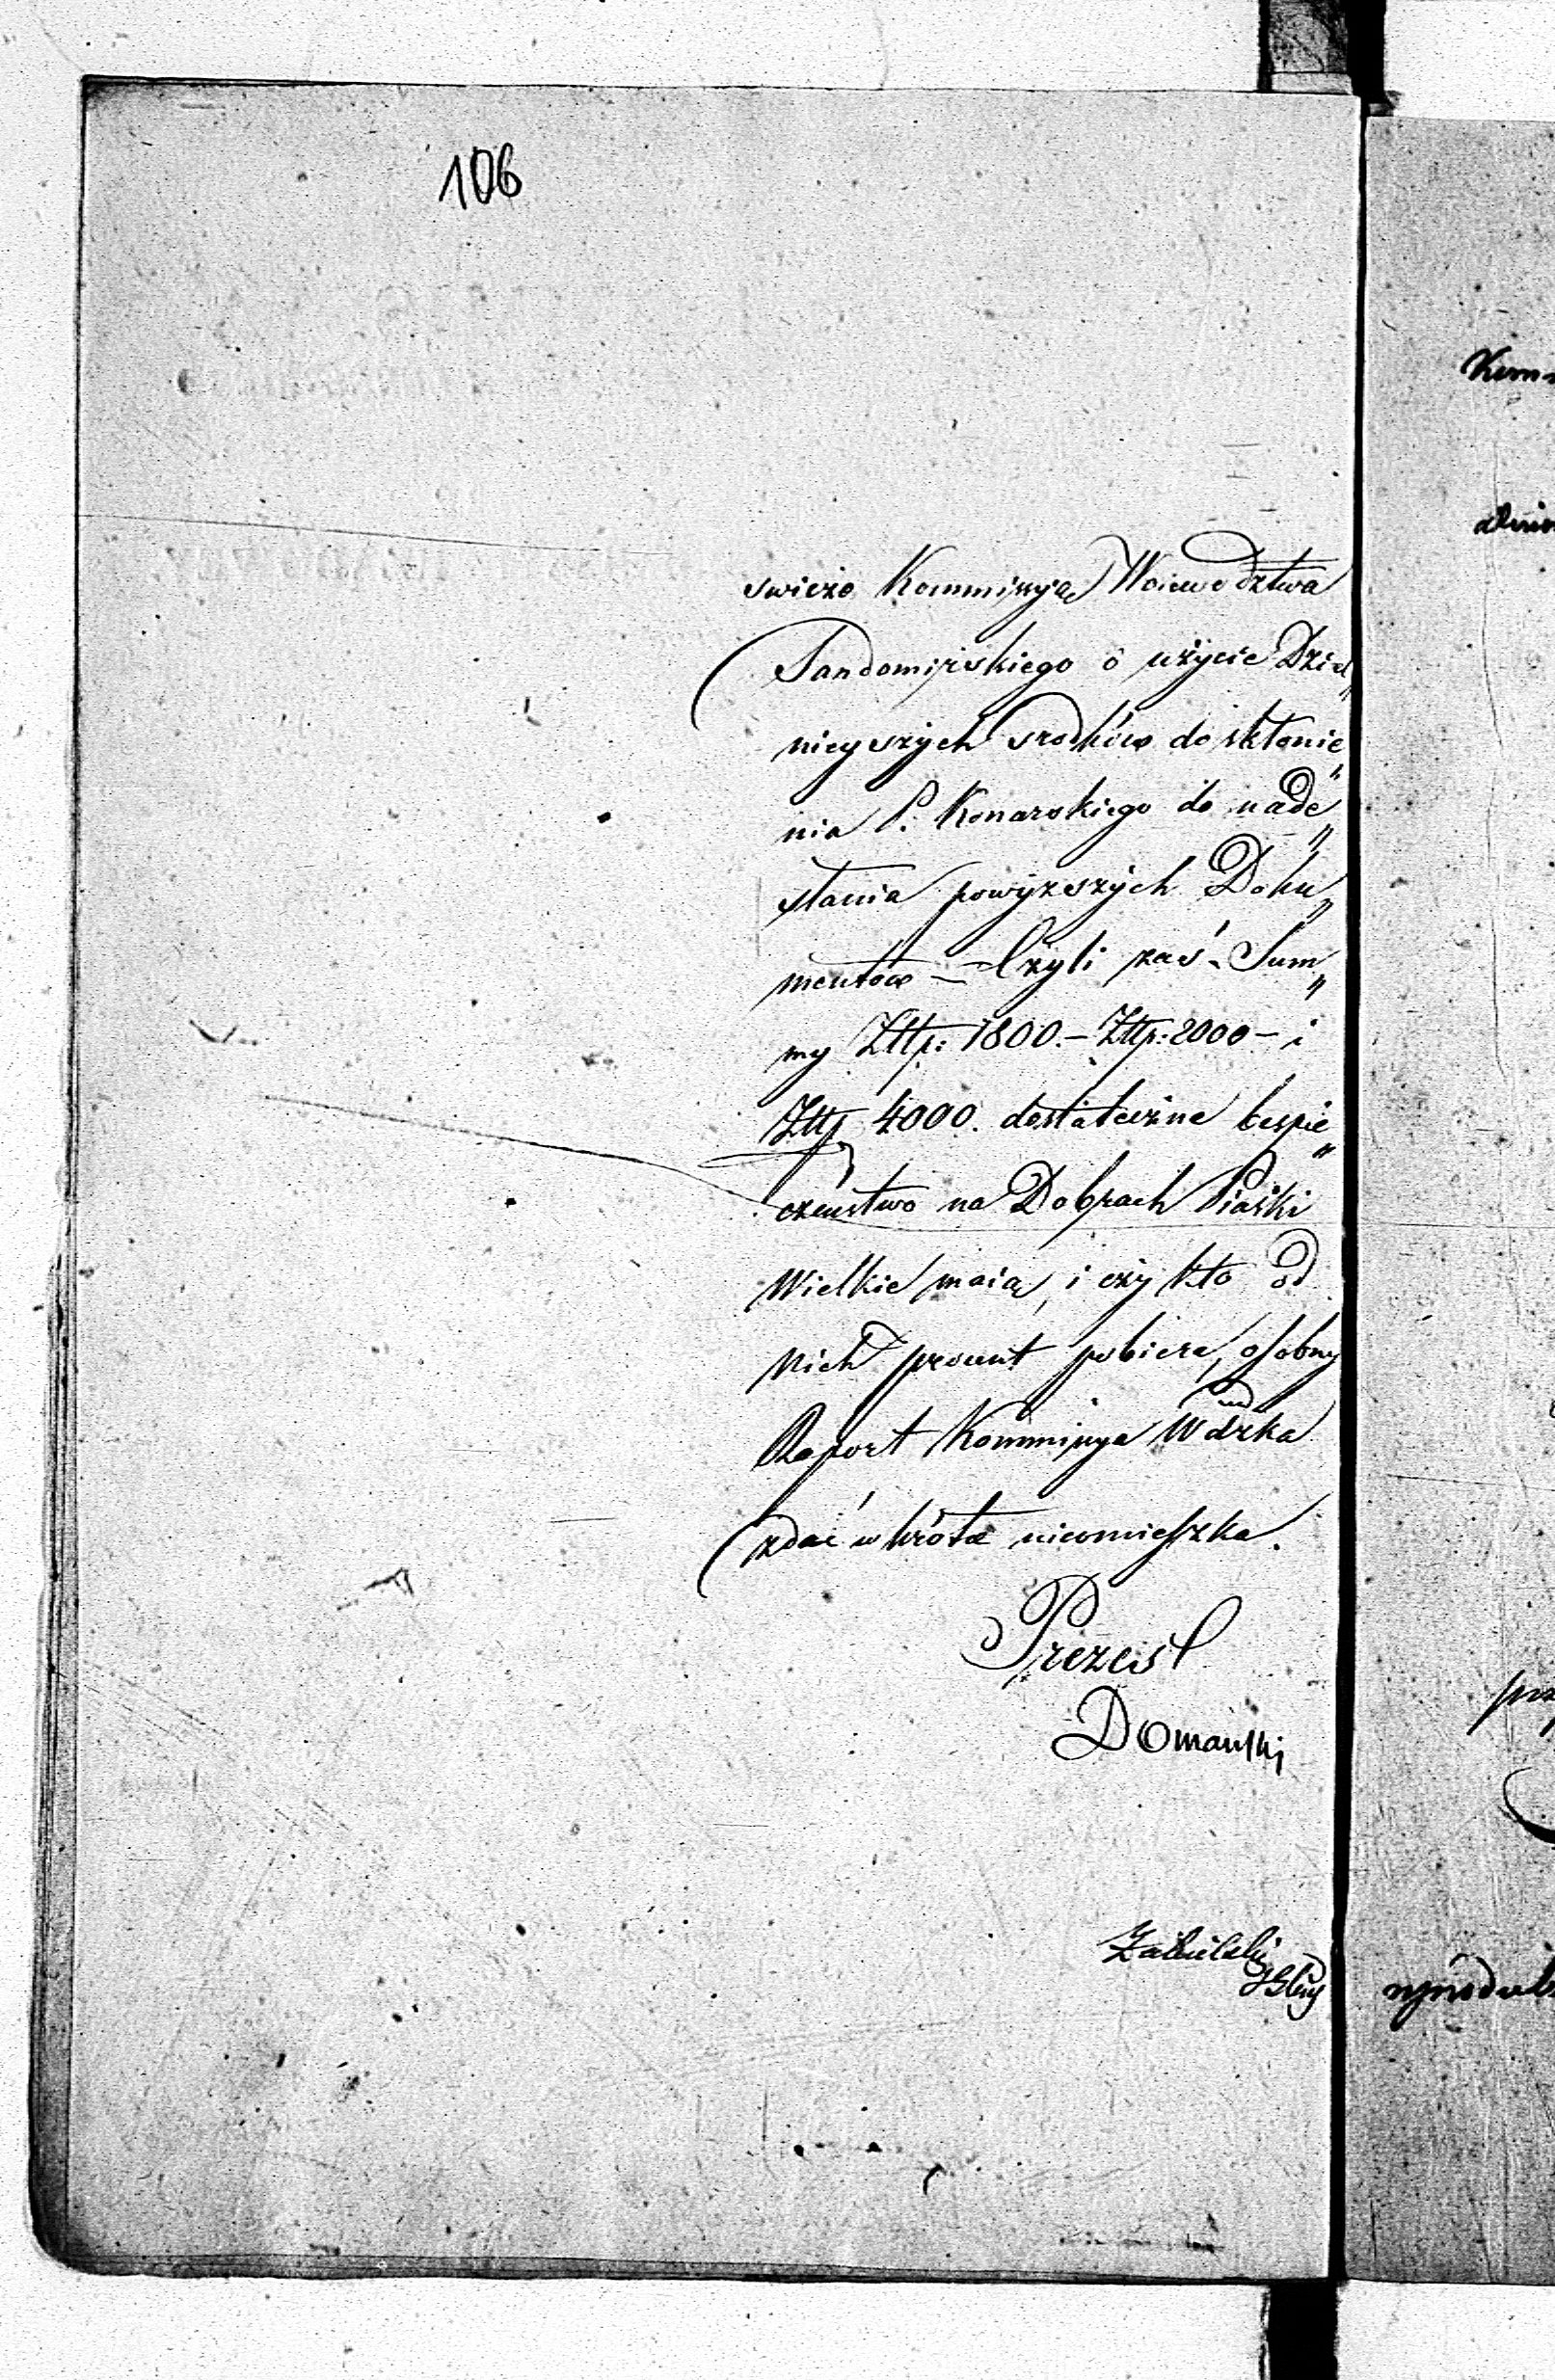 106
swieżo Kommissyą Woiewodztwa
Sandomirskiego o użycie Dziel„
nieyszych srodków do skłonie„
nia P. Konarskiego do nade„
słania powyższych Doku„
mentow — Czyli zaś Sum„
my Złtp: 1800.— Złtp: 2000 — i
Złtp 4000. dostateczne bespie„
czeństwo na Dobrach Piaski
Wielkie maią, i czy kto od
nich procent pobiera, osobny
Raport Kommissya Wdzka
zdać wkrótce nieomieszka.
Prezes
Domański
Zabielski